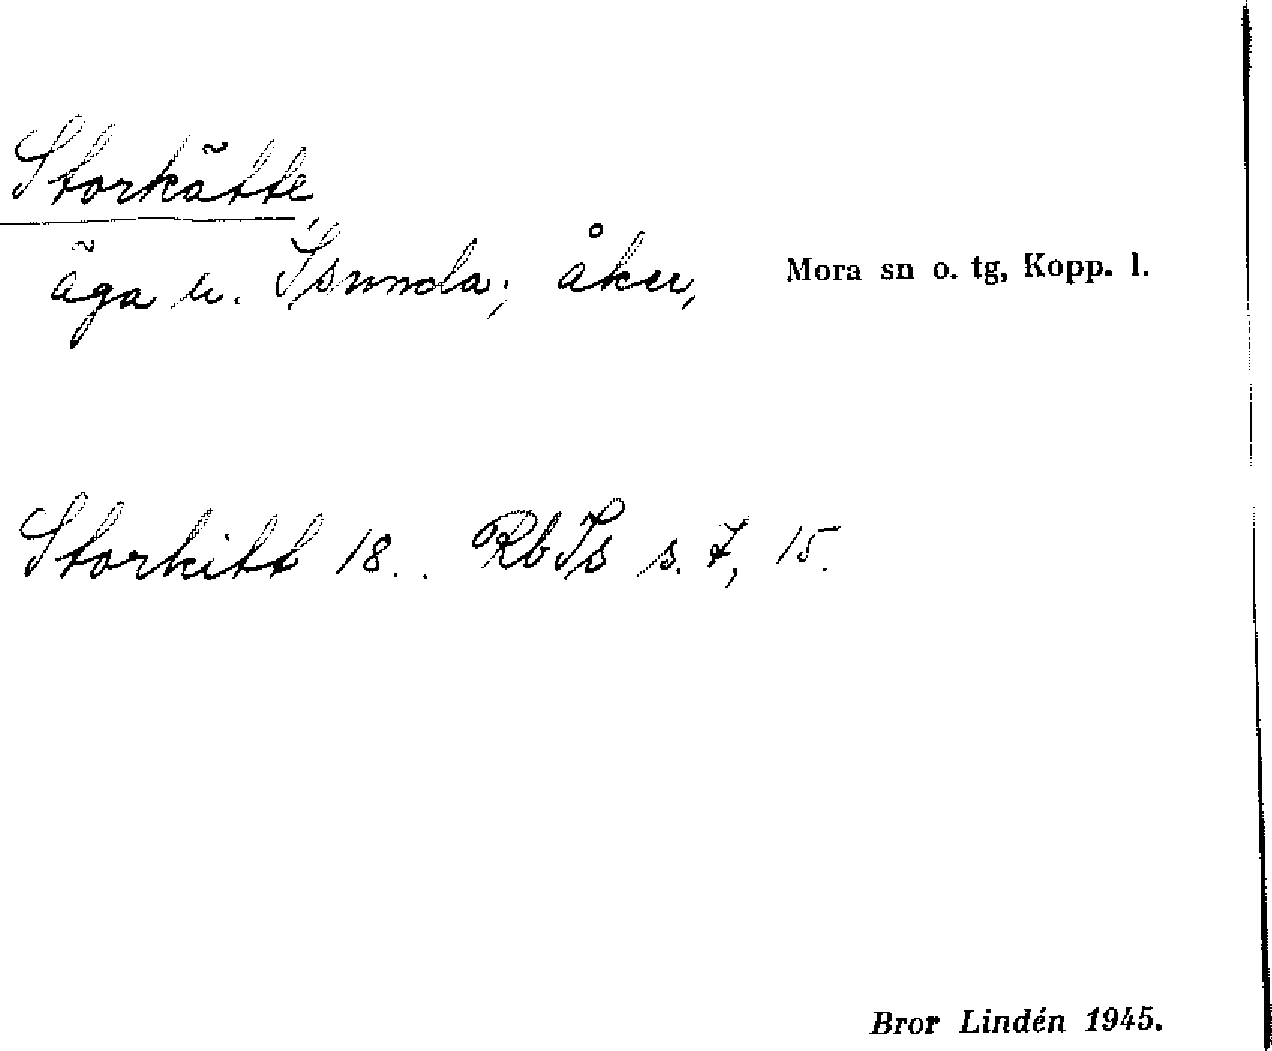 Storkätte,
äga u. Isunda; åker, Mora sn o. tg, Kopp. l.
Storkitt 18.. RbIs s. 7, 15.
Bror Lindén 1945.